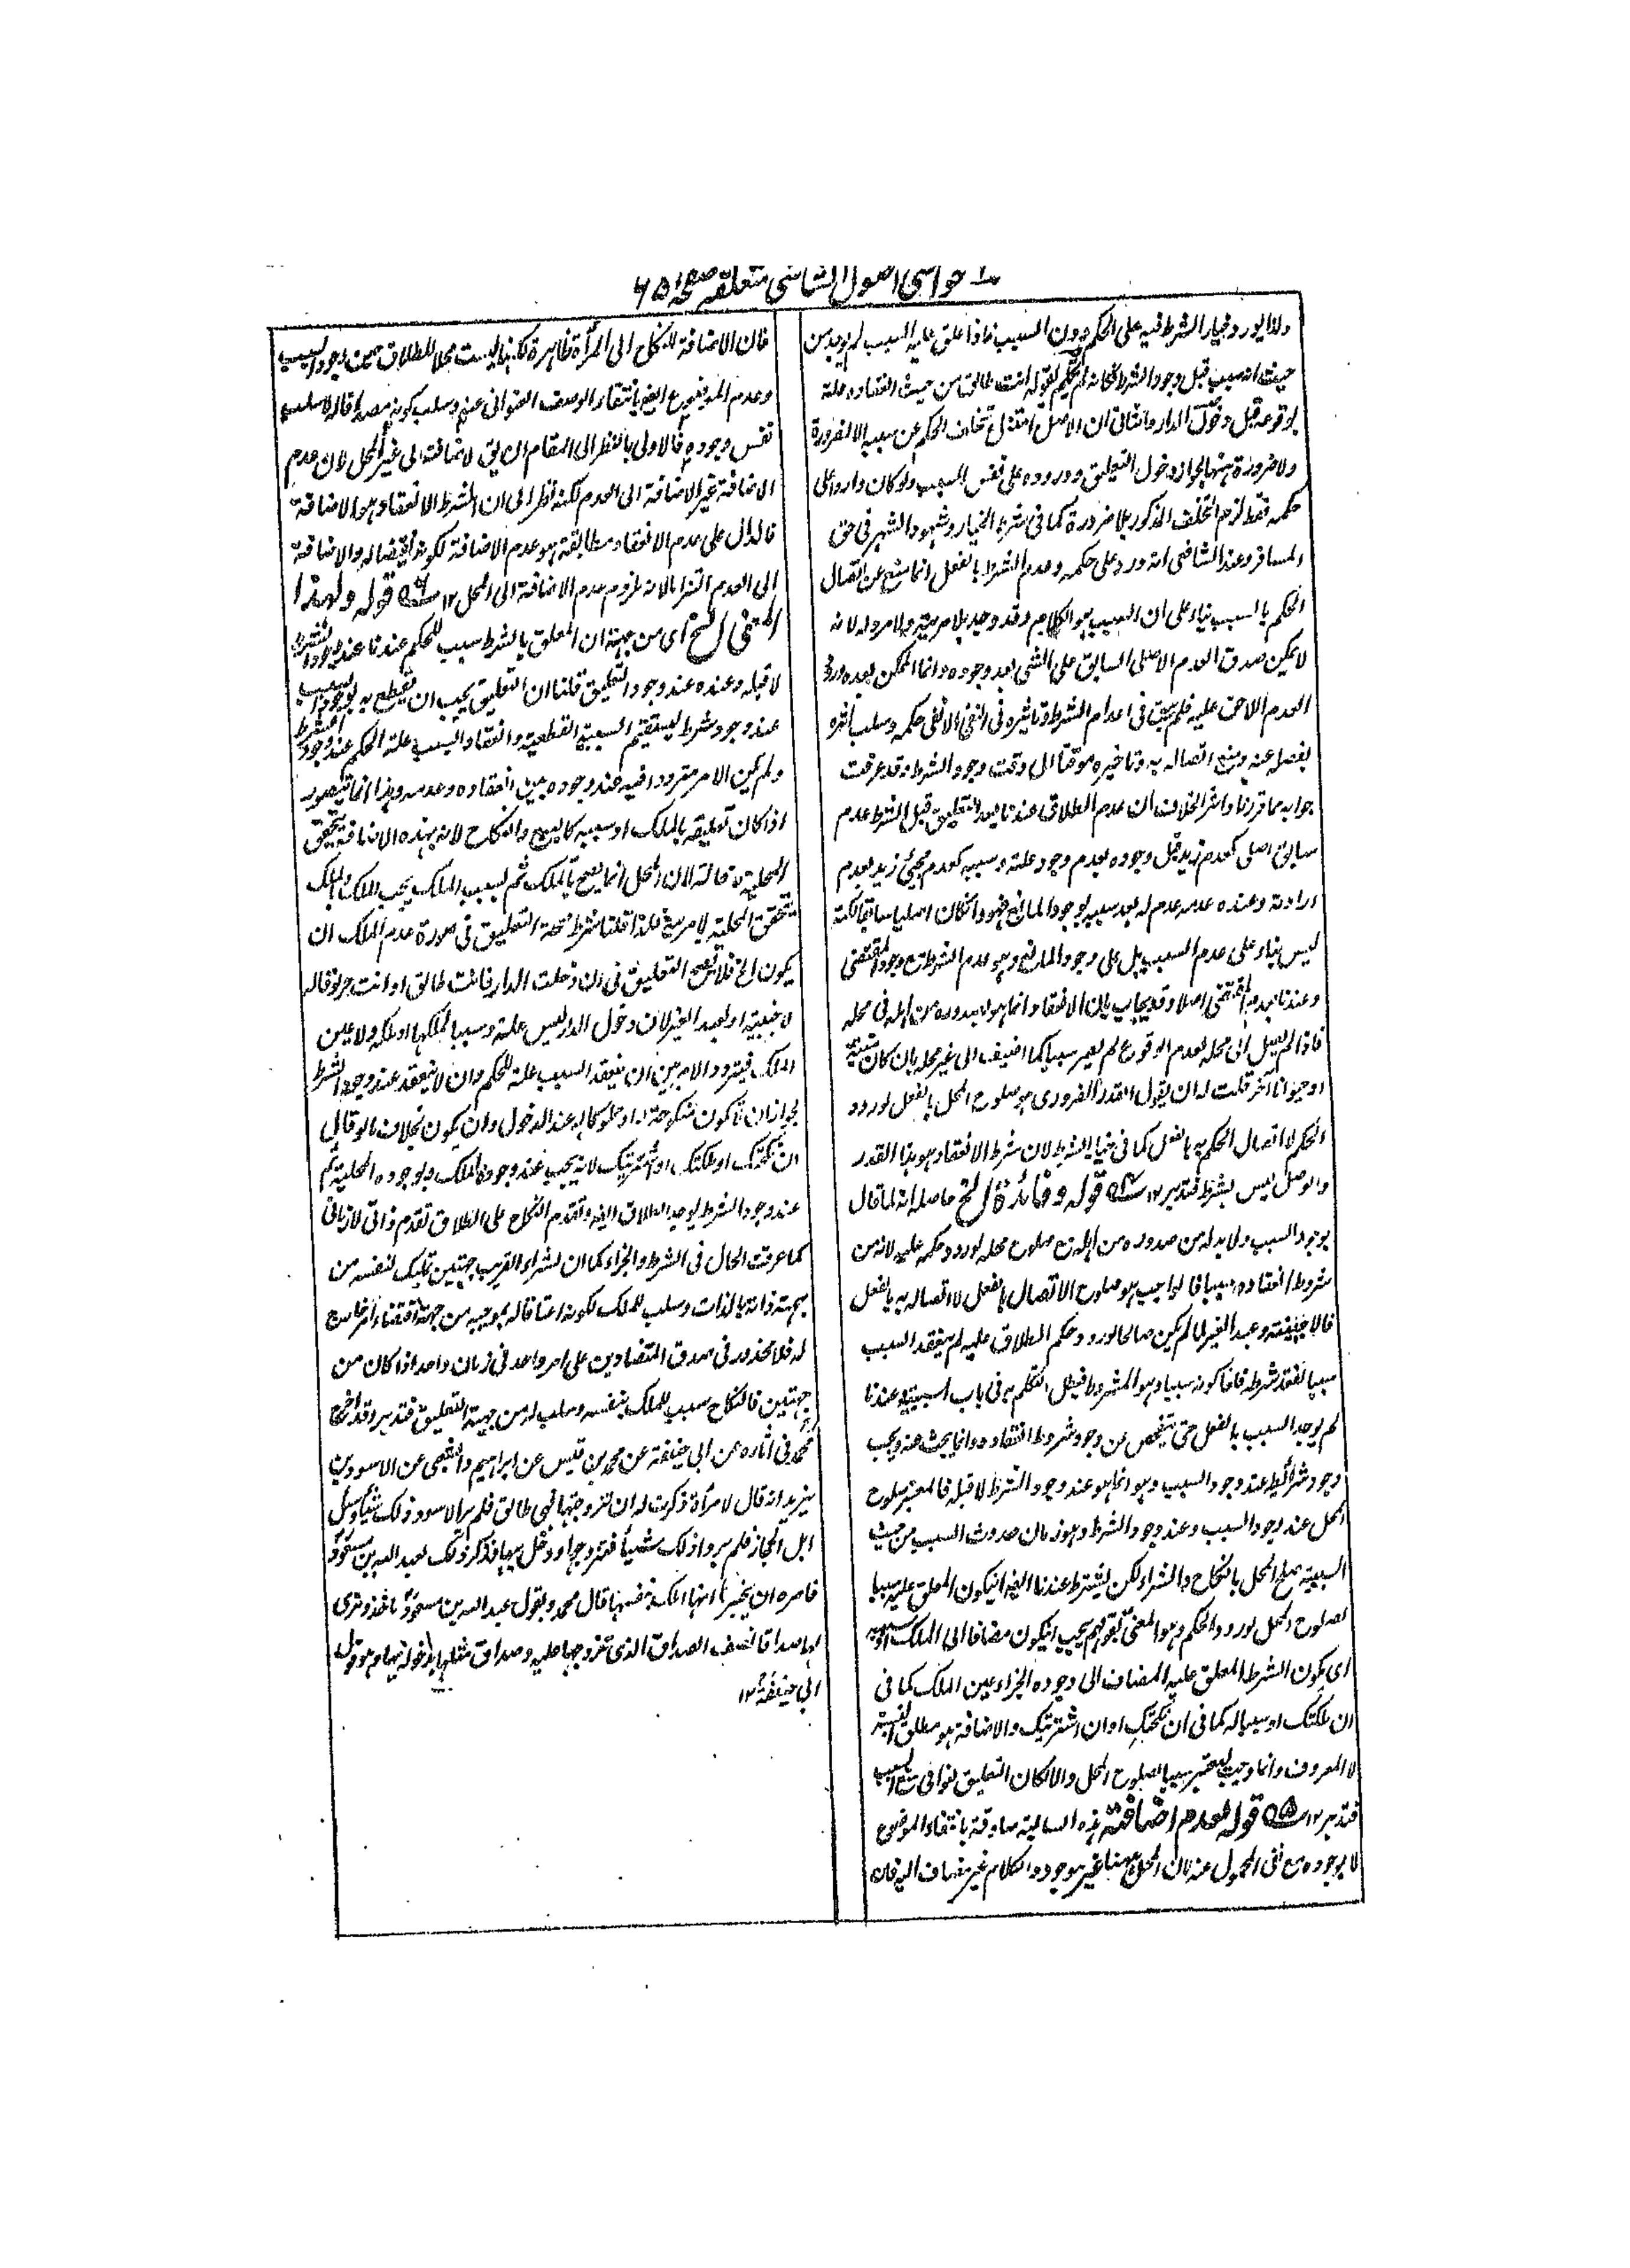 حواشی اصول الشاشی متعلقہ صفحہ ۶۵
ولذا یورد خیار الشرط فیہ علی الحکم دون السبب فاذا علق علیہ السبب لم یوجد من
حیث انہ سبب قبل وجود الشرط فکانہ لم یتکلم بقولہ انت طالق من حیث انعقادہ علة
لوقوعہ قبل دخول الدار والثانی ان الاصل تخلف الحکم عن سببہ الا لضرورة
ولا ضرورة ہہنا لجواز دخول التعلیق وورودہ علی نفس السبب ولو کان واردا علی
حکمہ فقط لزم التخلف المذکور بلا ضرورة کما فی شرط الخیار وشہود الشہر فی حق
المسافر وعند الشافعی انہ ورد علی حکمہ وعدم الشرط بالفعل انما منع عن اتصال
الحکم بالسبب بناء علی ان السبب ہو الکلام وقد وجد بلا مریة ولا مرد لہ لانہ
لا یمکن صدق العدم الاصلی السابق علی الشئ بعد وجودہ وانما الممکن بعدہ ورود
العدم اللاحق علیہ فلم یبق فی اعدام الشرط وتاثیرہ فی النفی الا نفی حکمہ وسلب اثرہ
بفصلہ عنہ ومنع اتصالہ بہ وتاخیرہ موقتا الی وقت وجود الشرط وقد عرفت
جوابہ مما قررنا واثر الخلاف ان عدم الطلاق عندنا بعد التعلیق قبل الشرط عدم
سابق اصلی کعدم زید قبل وجودہ بعدم وجود علتہ وسببہ کعدم مجیئ زید بعدم
ارادتہ وعندہ عدمہ عدم لہ بعد سببہ لوجود المانع فہو وان کان اصلیا سابقا لکنہ
لیس بناء علی عدم السبب بل علی وجود المانع وہو عدم الشرط مع وجود المقتضی
وعندنا بعدم المقتضی اصلا وقد یجاب بان الانعقاد انما ہو بصدورہ من اہلہ فی محلہ
فاذا لم یصل الی محلہ بعدم الوقوع لم یصر سببا کما اضیف الی غیر محلہ بان کان میتة
او حیوانا آخر قلت لہ ان یقول القدر الضروری ہو صلوح المحل بالفعل لورود
الحکم لا اتصال الحکم بہ بالفعل کما فی خیار الشرط لان شرط الانعقاد ہو ہذا القدر
والوصل لیس بشرط فتدبر ۱۲ قولہ وفائدة الخ حاصلہ انہ لما قال
بوجود السبب ولا بد لہ من صدورہ من اہلہ مع صلوح محلہ لورود حکمہ علیہ لانہ من
شروط انعقادہ سببا فالواجب ہو صلوح الاتصال بالفعل لا اتصالہ بہ بالفعل
فالاجنبیة وعبد الغیر لما لم یکن صالحا لورود حکم الطلاق علیہ لم ینعقد السبب
سببا لفقد شرطہ فانتفا کونہ سببا وہو المشروط فبطل التکلم بہ فی باب السببیة وعندنا
لم یوجد السبب بالفعل حتی یتفحص عن وجود شروط انعقادہ وانما یبحث عنہ ویجب
وجود شرائطہ عند وجود السبب وہو انما ہو عند وجود الشرط لا قبلہ فالمعتبر صلوح
المحل عند وجود السبب وعند وجود الشرط وہو زمان حدوث السبب من حیث
السببیة صلح المحل بالنکاح والشراء لکن یشترط عندنا ایضا ان یکون المعلق علیہ سببا
لصلوح المحل لورود الحکم وہو المعنی بقولہم یجب ان یکون مضافا الی الملک او سببہ
ای یکون الشرط المعلق علیہ المضاف الی وجودہ الجزاء عین الملک کما فی
ان ملکتک او سببا لہ کما فی ان نکحتک او ان اشتریتک والاضافة ہو مطلق النسبة
لا المعروف وانما وجب لیعتبر سببا لصلوح المحل والا لکان التعلیق لغوا فی منع السبب
فتدبر ۱۲ قولہ لعدم اضافتہ ہذہ السالبة صادقة بانتفاء الموضوع
لا بوجودہ مع نفی المحمول عنہ لان المحل ہہنا غیر موجود والکلام غیر مضاف الیہ فان
فان الاضافة للنکاح الی المرأة ظاہرة لکنہا لیست محلا للطلاق حین وجود السبب
وعدم الموضوع ایضا بانتفاء الوصف العنوانی عنہ وسلب کونہ مصداقا لہ لا سلب
نفس وجودہ فالاولی بالنظر الی المقام ان یق لاضافتہ الی غیر المحل لان عدم
الاضافة غیر الاضافة الی العدم لکنہ نظر الی ان الشرط الانعقاد ہو الاضافة
فالدال علی عدم الانعقاد مطابقة ہو عدم الاضافة لکونہ نقیضا لہ والاضافة
الی العدم التزاما لانہ ملزوم عدم الاضافة الی المحل ۱۲ قولہ ولہذا
المعنی الخ ای من جہة ان المعلق بالشرط سبب للحکم عندنا عند وجود الشرط
لا قبلہ وعندہ عند وجود التعلیق قلنا ان التعلیق یجب ان یقطع بہ بوجود السبب
عند وجود شرط لیستقیم السببیة القطعیة وانعقاد السبب علة الحکم عند وجود الشرط
ولم یکن الامر مترددا فیہ عند وجودہ بین انعقادہ وعدمہ وہذا انما یتصور
اذا کان تعلیقہ بالملک او سببہ کالبیع والنکاح لانہ بہذہ الاضافة یتحقق
المحلیة لا محالة لان المحل انما یصح بالملک ثم لسبب الملک یجب الملک وبالملک
یتحقق المحلیة لا مریة فلذا قلنا شرط صحة التعلیق فی صورة عدم الملک ان
یکون الخ فلا یصح التعلیق فی ان دخلت الدار فانت طالق او انت حر لو قالہ
لاجنبیة او لعبد الغیر لان دخول الدار لیس علة وسببا لملکہا او ملکہ ولا عین
الملک فیتردد الامر بین ان ینعقد السبب علة للحکم وان لا ینعقد عند وجود الشرط
لجواز ان تکون منکوحة لہ او مملوکا لہ عند الدخول وان لا یکون بخلاف ما لو قال
ان نکحتک او ملکتک او اشتریتک لانہ یجب عند وجودہ الملک وبوجودہ المحلیة ثم
عند وجود الشرط یوجد الطلاق ایضا وتقدم النکاح علی الطلاق تقدم ذاتی لا زمانی
کما عرفت الحال فی الشرط والجزاء کما ان لشراء القریب جہتین تملیک لنفسہ من
جہة ذاتہ بالذات وسلب للملک لکونہ اعتاقا لہ بموجبہ من جہة اقتضاء امر خارج
لہ فلا محذور فی صدق المتضادین علی امر واحد فی زمان واحد اذا کان من
جہتین فالنکاح سبب للملک بنفسہ وسلب لہ من جہة التعلیق فتدبر وقد اخرج
محمد فی آثارہ عن ابی حنیفة عن محمد بن قیس عن ابراہیم والشعبی عن الاسود بن
یزید انہ قال لامرأة ذکرت لہ ان تزوجتہا فہی طالق فلم یر الاسود ذلک شیئا وسئل
اہل الحجاز فلم یروا ذلک شیئا فتزوجہا ودخل بہا فذکر ذلک لعبد اللہ بن مسعود
فامرہ ان یخبرہا انہا املک بنفسہا قال محمد وبقول عبد اللہ بن مسعود ناخذ ونری
لہا صداقا نصف الصداق الذی تزوجہا علیہ وصداق مثلہا بدخولہ بہا وہو قول
ابی حنیفة ۱۲